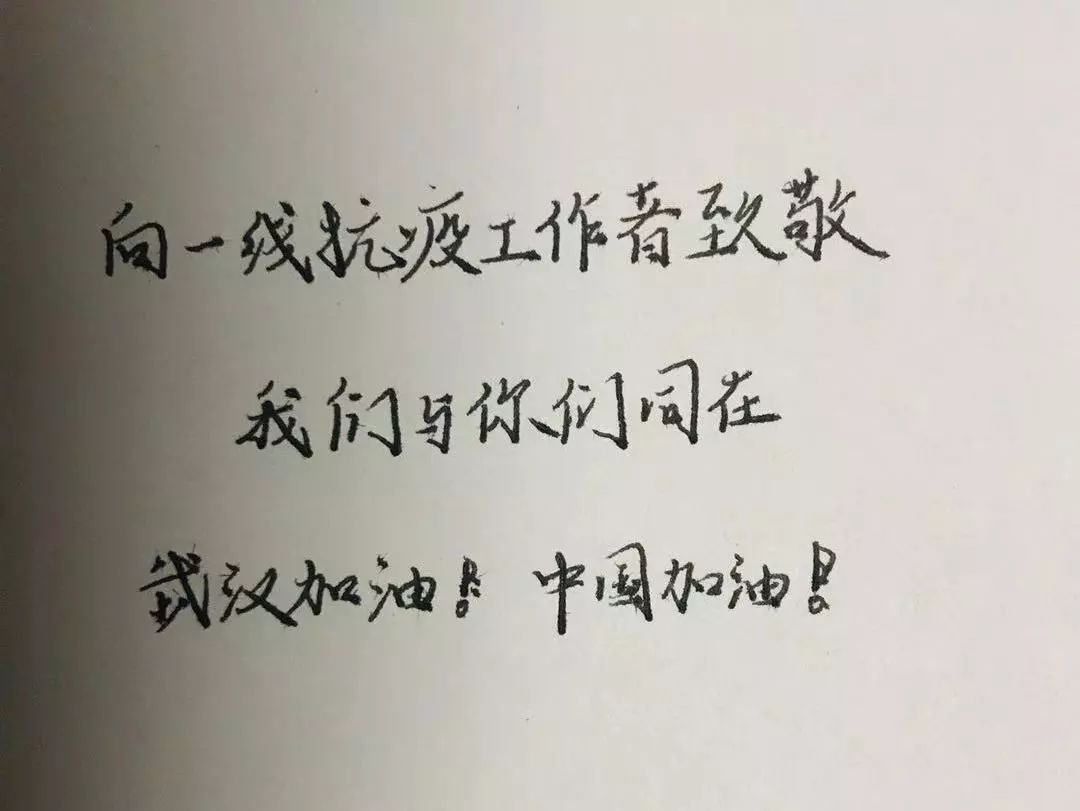 向一线抗疫工作者致敬
我们与你们同在
武汉加油！中国加油！